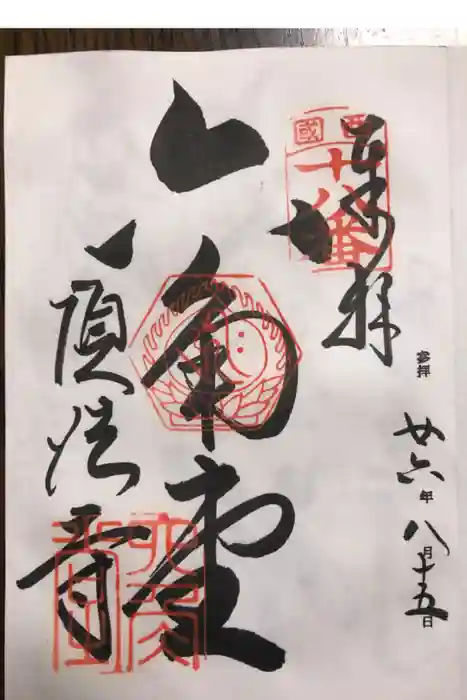 参拝 廿六年八月十五日
奉拝
西國
十八番
六角堂
頂法寺